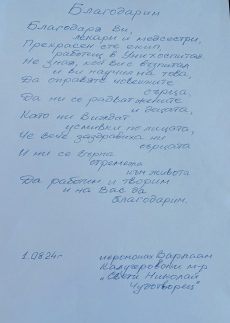 Благодарим
Благодаря Ви,
лекари и медсестри,
Прекрасен сте екип,
работещ в Унихоспитал
Не зная, кой Ви е възпитал
и ви научил на това,
Да оправяте човешките
сърца.
Да ни се радват жените
и децата,
Като ни виждат
усмивки по лицата,
Че вече заздравяха ни
сърцата
И ни се върна
стремежа
към живота
Да работим и творим
и на Вас да
благодарим.
1.08.24г. йеромонах Варлаам
Калугеровски м-р
„Свети Николай
Чудотворец"